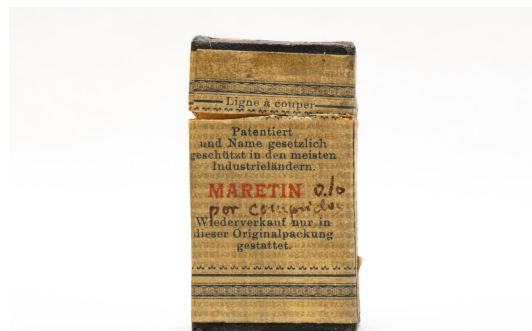 Ligne à couper
Patentiert
und Name gesetzlich
geschützt in den meisten
Industrieländern.
MARETIN 0.10
por
Wiederverkauf nur in
dieser Originalpackung
gestattet.